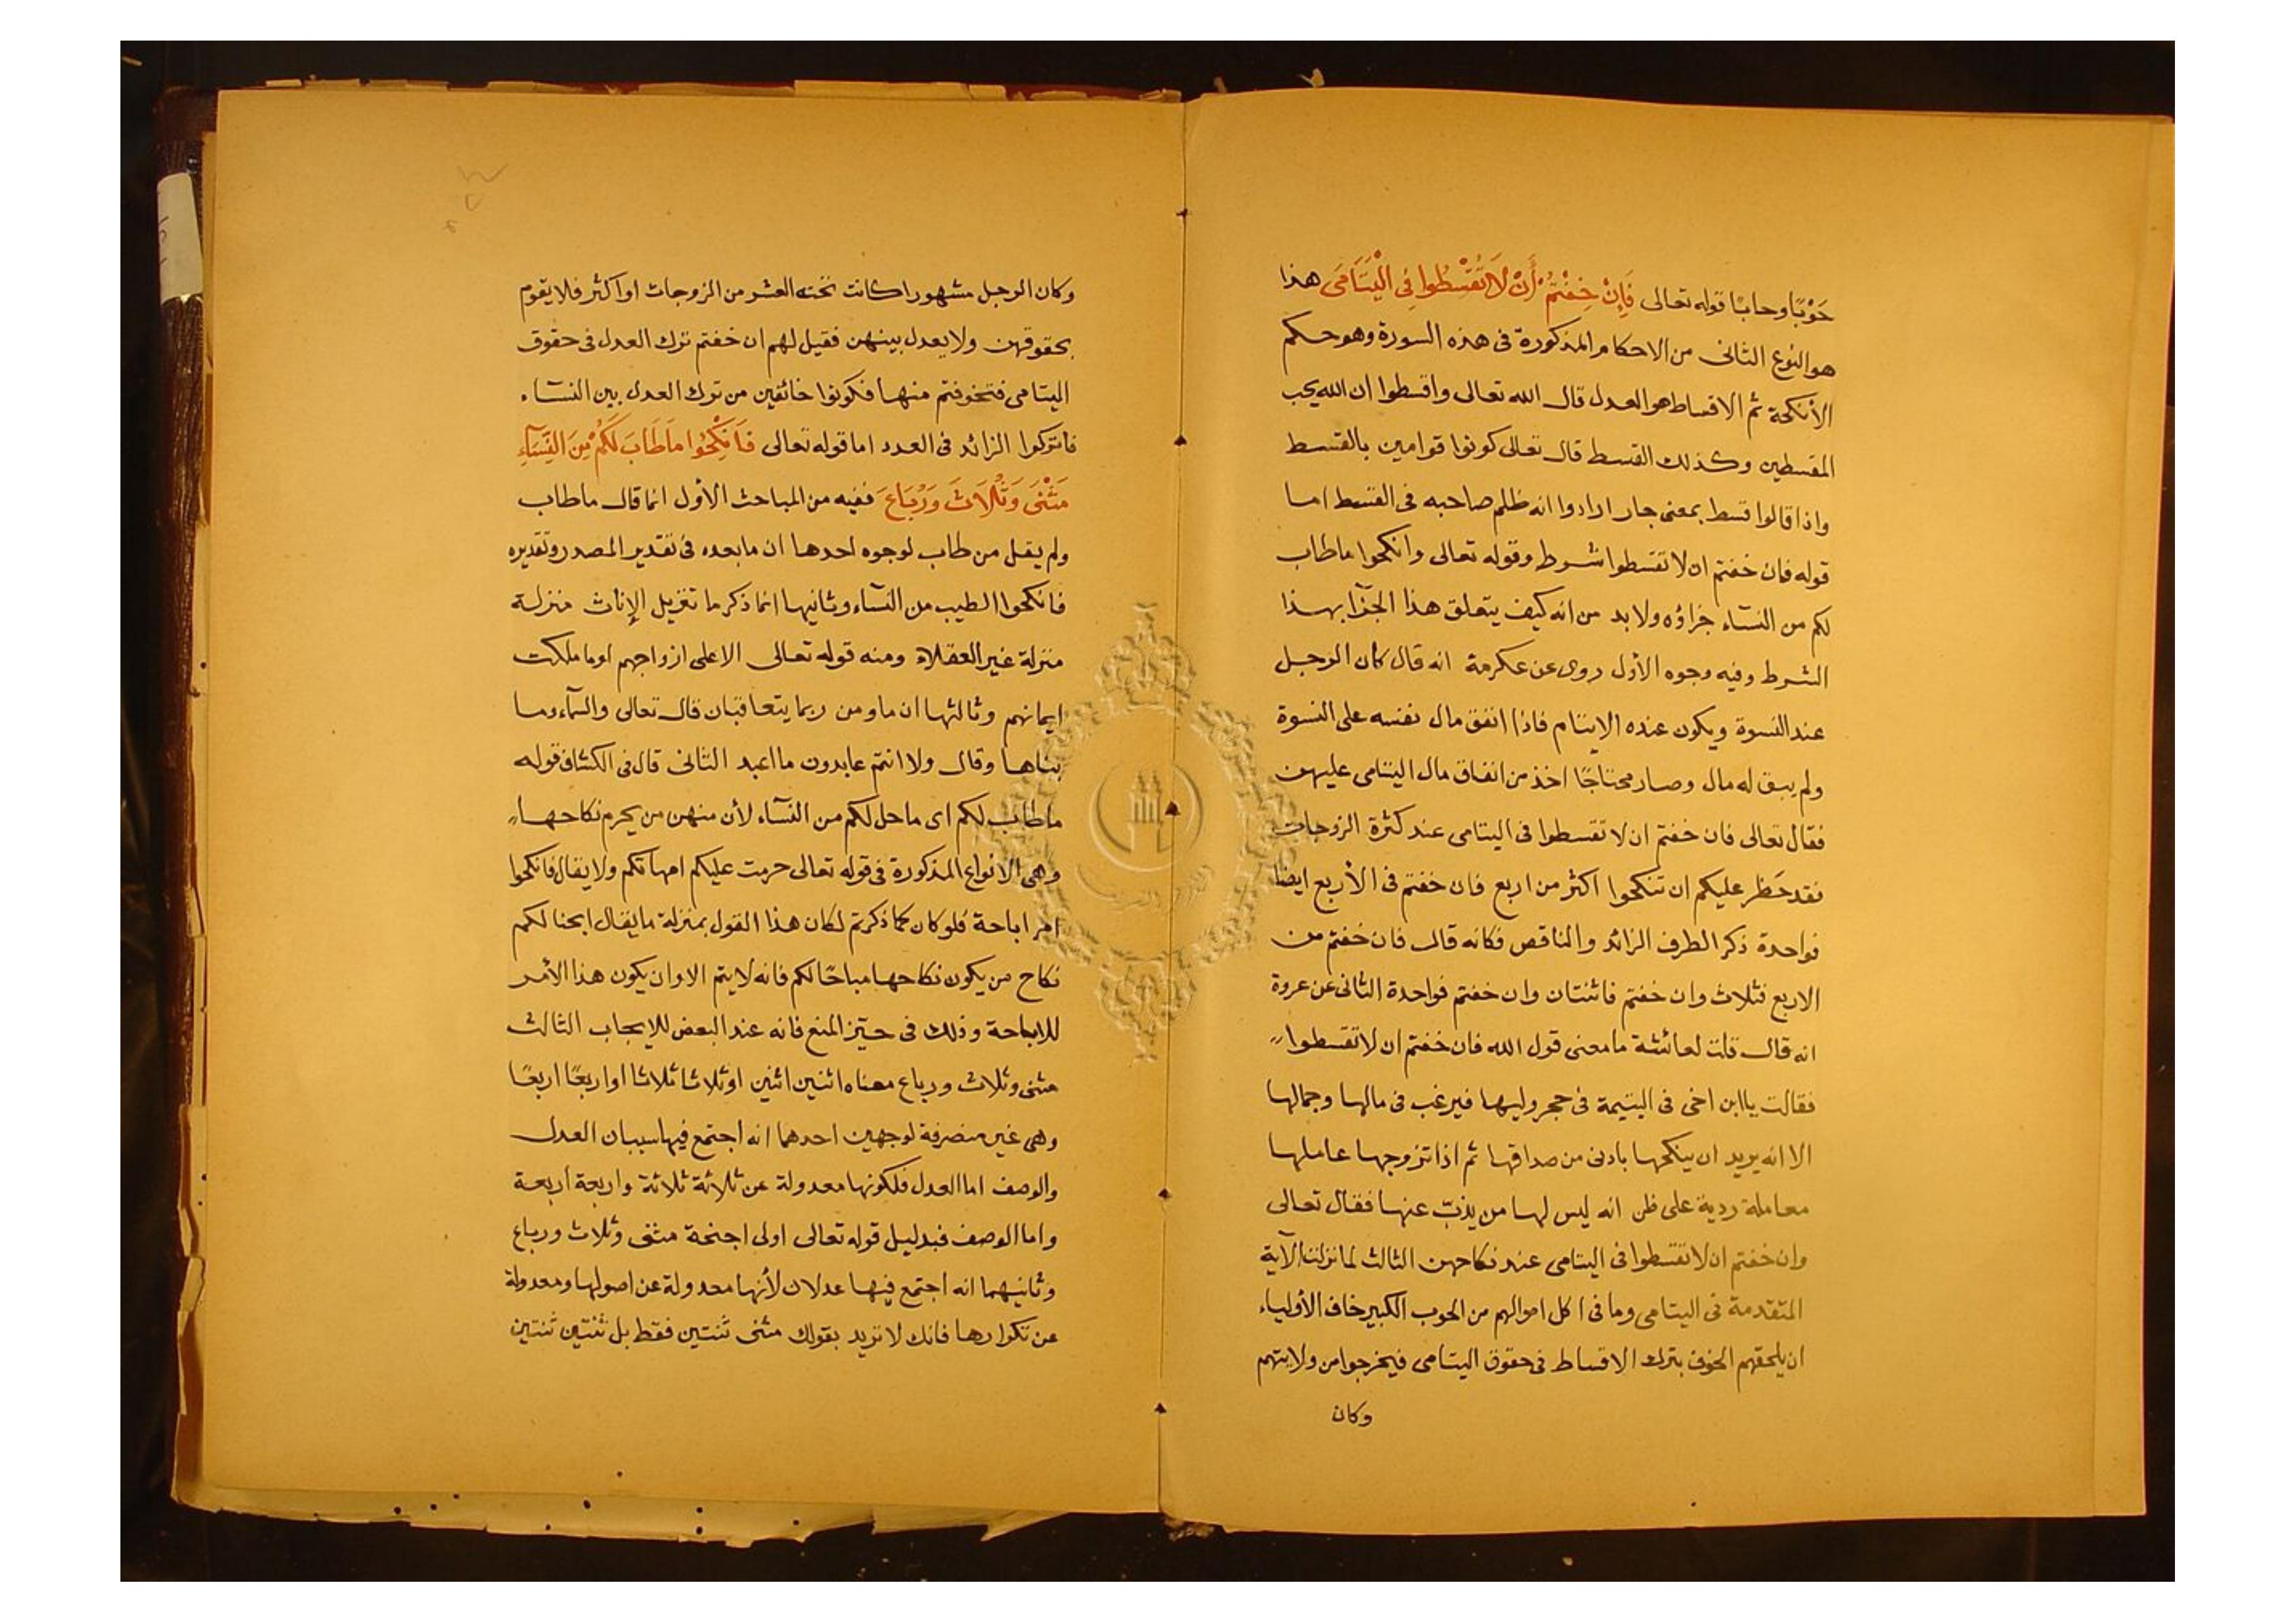 حَوْبًا وحابًا قوله تعالى فَإِنْ خِفْتُمْ أَنْ لَا تُقْسِطُوا فِى الْيَتَامَى هذا
هو النوع الثانى من الاحكام المذكورة فى هذه السورة وهو حكم
الأنكحة ثم الاقساط هو العدل قال الله تعالى واقسطوا ان الله يحب
المقسطين وكذلك القسط قال تعالى كونوا قوامين بالقسط
واذا قالوا قسط بمعنى جار ارادوا انه ظلم صاحبه فى القسط اما
قوله فان خفتم ان لا تقسطوا شرط وقوله تعالى وانكحوا ما طاب
لكم من النسآء جزاؤه ولا بد من انه كيف يتعلق هذا الجزآ بهذا
الشرط وفيه وجوه الأول روى عن عكرمة انه قال كان الرجل
عند النسوة ويكون عنده الايتام فاذا انفق مال نفسه على النسوة
ولم يبق له مال وصار محتاجًا اخذ من انفاق مال اليتامى عليهن
فقال تعالى فان خفتم ان لا تقسطوا فى اليتامى عند كثرة الزوجات
فقد حَظر عليكم ان تنكحوا اكثر من اربع فان خفتم فى الأربع ايضا
فواحدة ذكر الطرف الزائد والناقص فكانه قال فان خفتم من
الاربع فثلاث وان خفتم فاثنتان وان خفتم فواحدة الثانى عن عروة
انه قال قلت لعائشة ما معنى قول الله فان خفتم ان لا تقسطوا
فقالت يا ابن اخى فى اليتيمة فى حجر وليها فيرغب فى مالها وجمالها
الا انه يريد ان ينكحها بادنى من صداقها ثم اذا تزوجها عاملها
معاملة ردية على ظن انه ليس لها من يذبّ عنها فقال تعالى
وان خفتم ان لا تقسطوا فى اليتامى عند نكاحهن الثالث لما نزلت الآية
المتقدمة فى اليتامى وما فى اكل اموالهم من الحوب الكبير خاف الأولياء
ان يلحقهم الخوف بترك الاقساط فى حقوق اليتامى فيخرجوا من ولايتهم
وكان
وكان الرجل مشهورا كانت تحته العشر من الزوجات او اكثر فلا يقوم
بحقوقهن ولا يعدل بينهن فقيل لهم ان خفتم ترك العدل فى حقوق
اليتامى فتخوفتم منها فكونوا خائفين من ترك العدل بين النسآء
فاتركوا الزائد فى العدد اما قوله تعالى فَانْكِحُوا مَا طَابَ لَكُمْ مِنَ النِّسَآءِ
مَثْنَى وَثُلَاثَ وَرُبَاعَ ففيه من المباحث الأول انما قال ما طاب
ولم يقل من طاب لوجوه احدها ان ما بعده فى تقدير المصدر وتقديره
فانكحوا الطيب من النسآء وثانيها انما ذكر ما تنزيل الإناث منزلة
منزلة غير العقلاء ومنه قوله تعالى الا على ازواجهم او ما ملكت
ايمانهم وثالثها ان ما ومن ربما يتعاقبان قال تعالى والسمآء وما
بناها وقال ولا انتم عابدون ما اعبد الثانى قال فى الكشاف قوله
ما طاب لكم اى ما حل لكم من النسآء لأن منهن من يحرم نكاحها
وهى الانواع المذكورة فى قوله تعالى حرمت عليكم امهاتكم ولا يقال فانكحوا
امر اباحة فلو كان كما ذكرتم لكان هذا القول بمنزلة ما يقال ابحنا لكم
نكاح من يكون نكاحها مباحًا لكم فانه لا يتم الا وان يكون هذا الأمر
للاباحة وذلك فى حيّز المنع فانه عند البعض للايجاب الثالث
مثنى وثلاث ورباع معناه اثنين اثنين او ثلاثا ثلاثا او اربعًا اربعًا
وهى غير منصرفة لوجهين احدهما انه اجتمع فيها سببان العدل
والوصف اما العدل فلكونها معدولة عن ثلاثة ثلاثة واربعة أربعة
واما الوصف فبدليل قوله تعالى اولى اجنحة مثنى وثلاث ورباع
وثانيهما انه اجتمع فيها عدلان لأنها معدولة عن اصولها ومعدولة
عن تكرارها فانك لا تريد بقولك مثنى ثنتين فقط بل ثنتين ثنتين